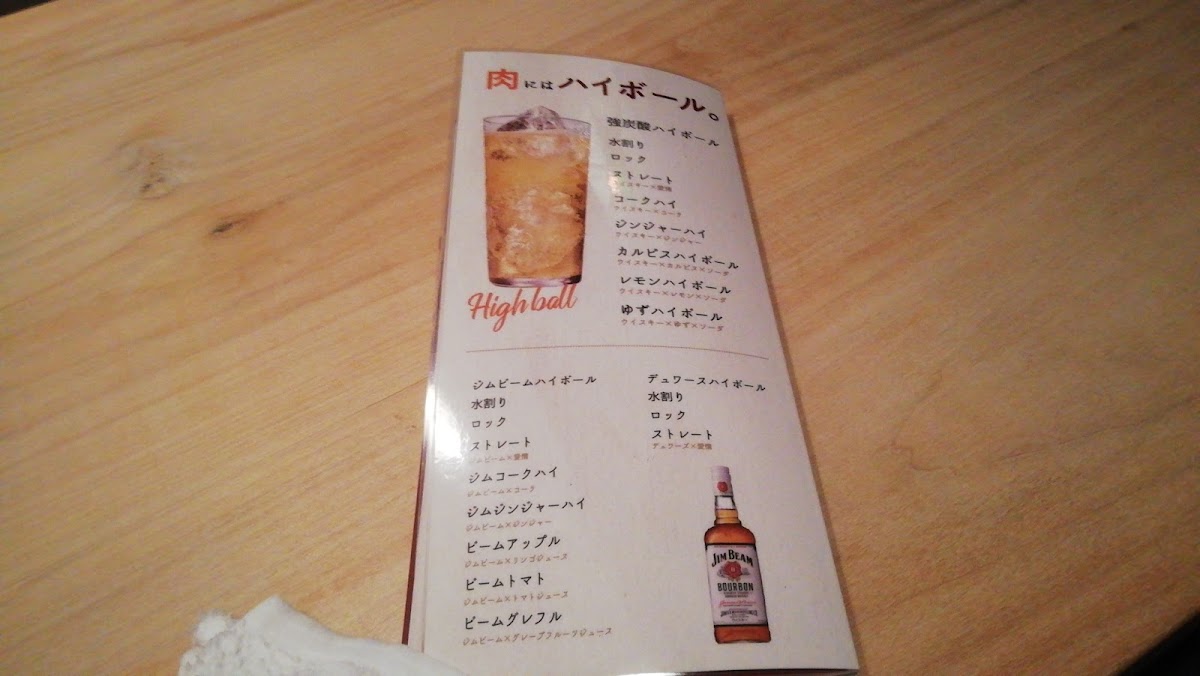 肉にはハイボール。
強炭酸ハイボール
水割り
ロック
ストレート
ウイスキー×愛情
コークハイ
ウイスキー×コーク
ジンジャーハイ
ウイスキー×ジンジャー
カルピスハイボール
ウイスキー×カルピス×ソーダ
レモンハイボール
ウイスキー×レモン×ソーダ
ゆずハイボール
ウイスキー×ゆず×ソーダ
Highball
ジムビームハイボール
水割り
ロック
ストレート
ジムビーム×愛情
ジムコークハイ
ジムビーム×コーク
ジムジンジャーハイ
ジムビーム×ジンジャー
ビームアップル
ジムビーム×リンゴジュース
ビームトマト
ジムビーム×トマトジュース
ビームグレフル
ジムビーム×グレープフルーツジュース
デュワースハイボール
水割り
ロック
ストレート
デュワーズ×愛情
JIM BEAM
BOURBON